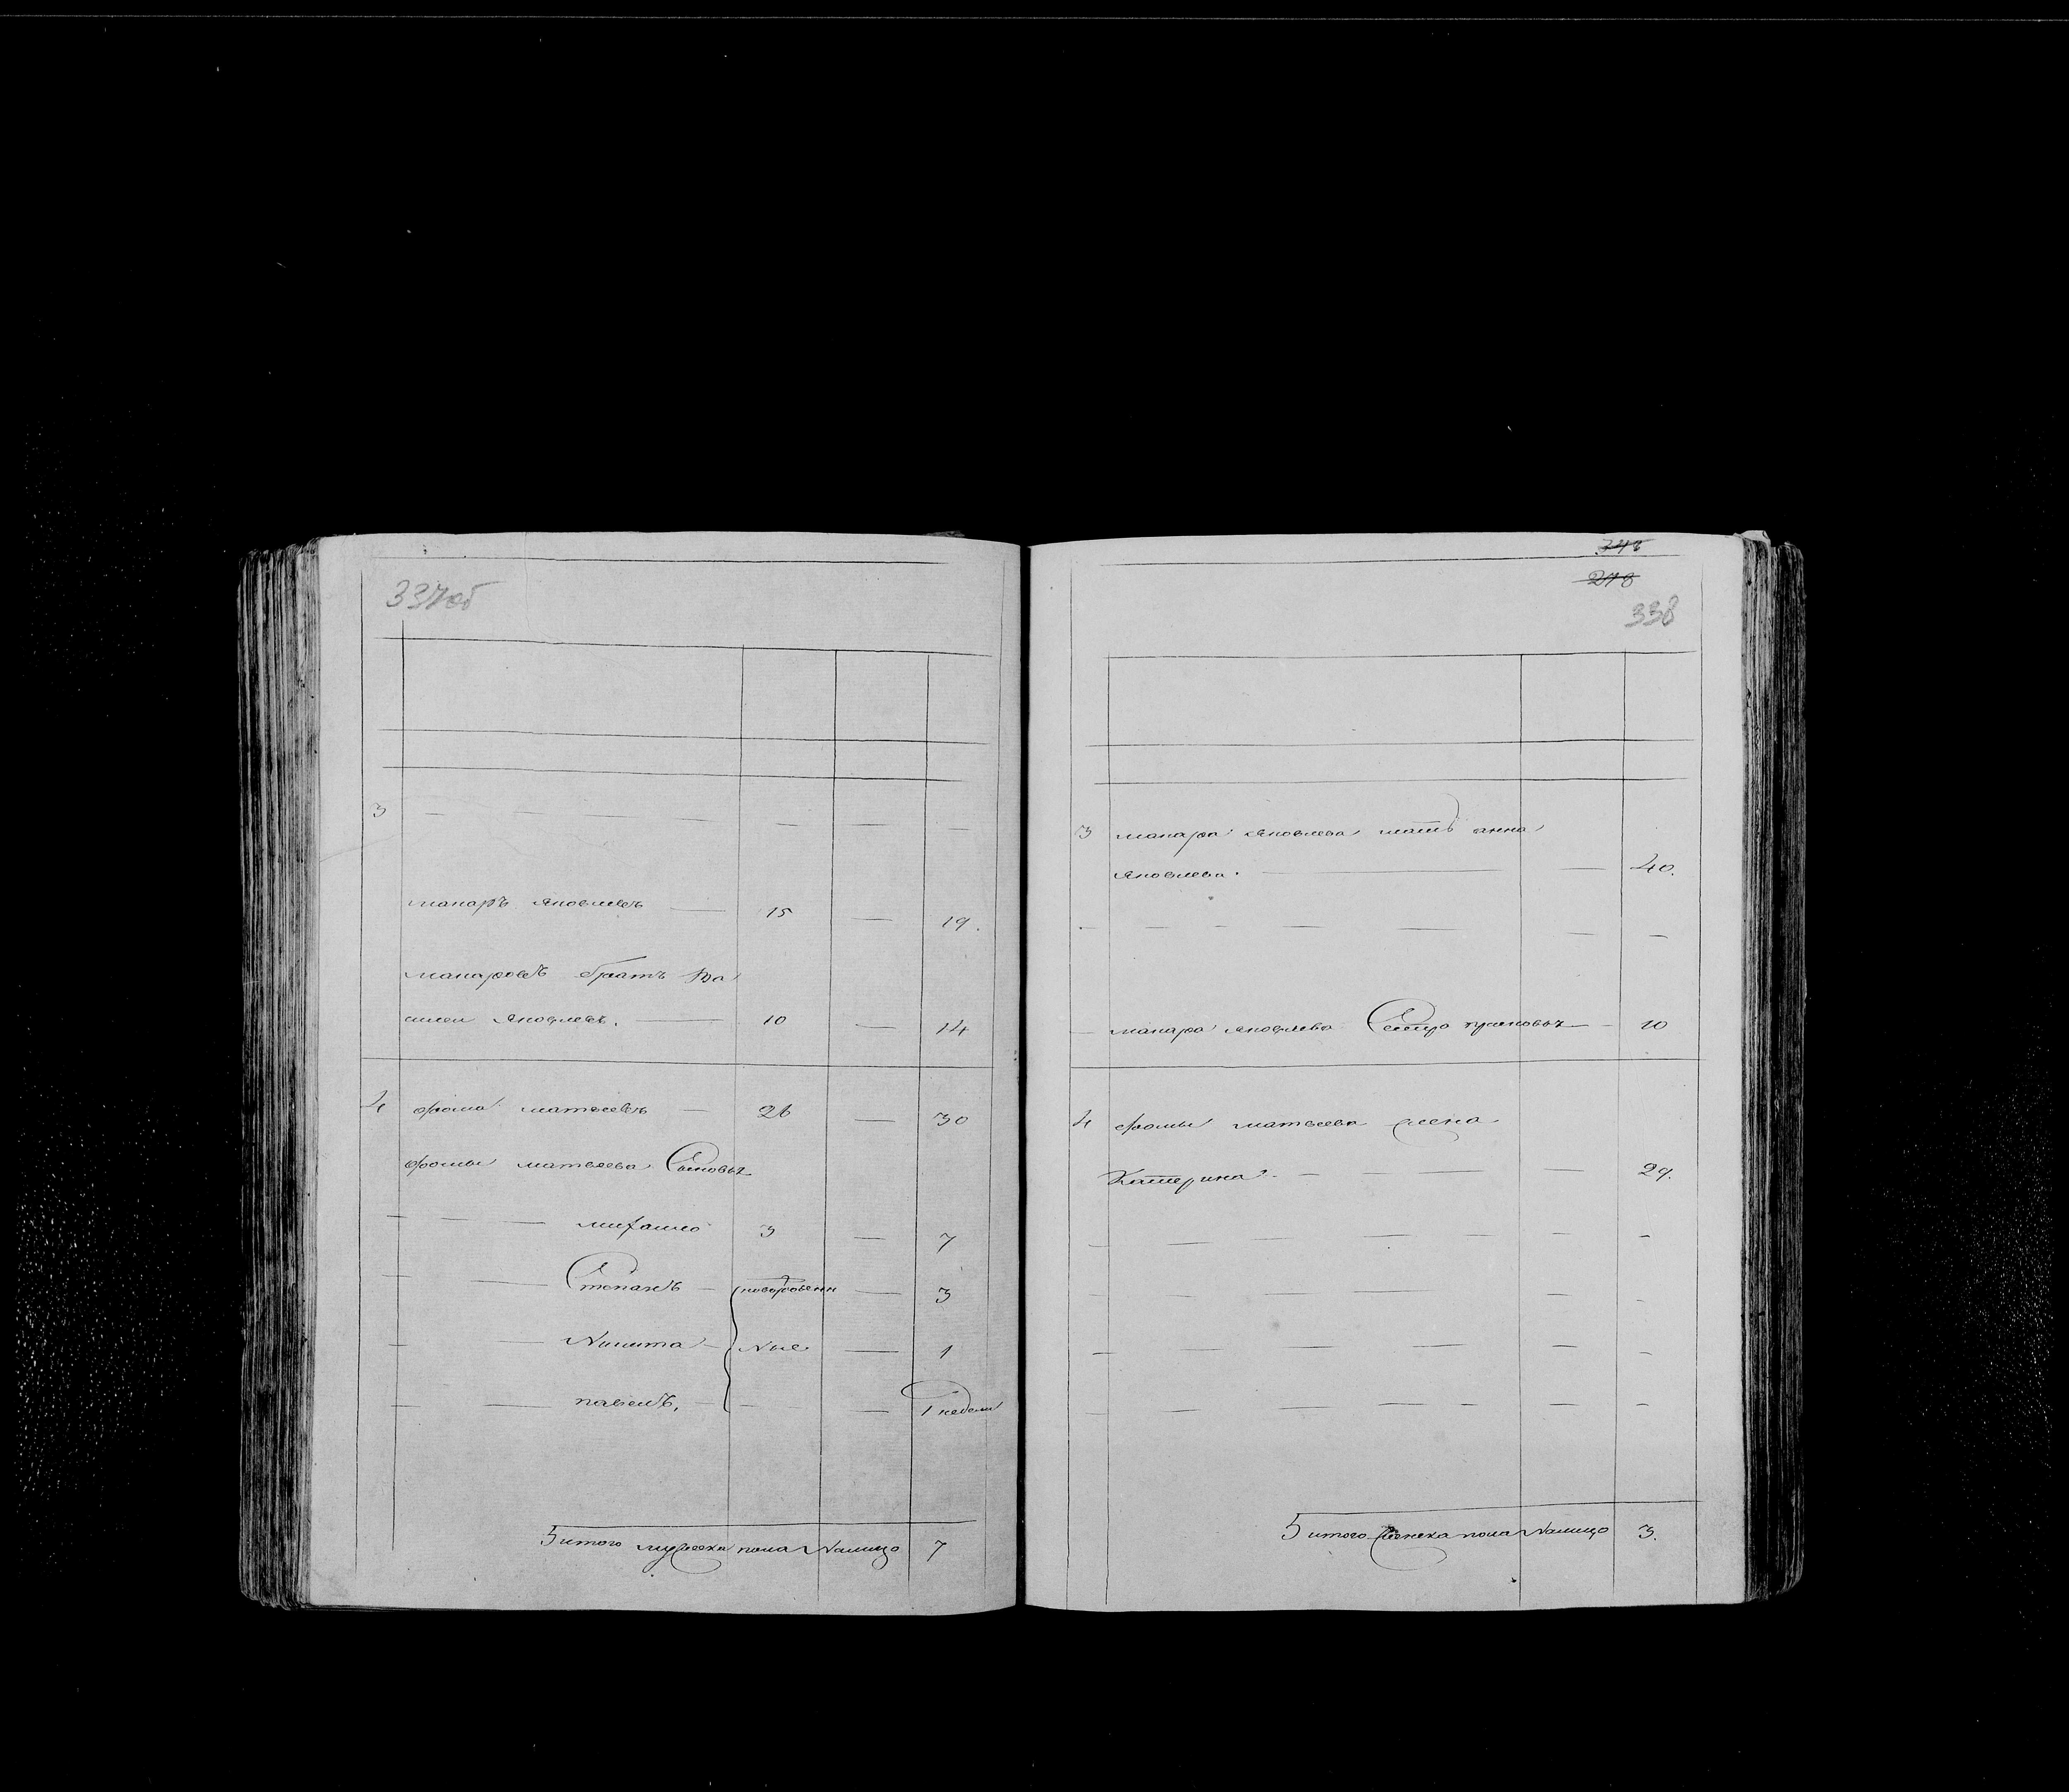 337об
3 — — — — — —
макаръ яковлевъ — 15 — 19.
макаровъ братъ ва
силеи яковлевъ. — 10 — 14
4 фома матвеевъ — 26 — 30
фомы матвеева Сыновья
— — — михаило 3 — 7
— — Степанъ — новорожденн — 3
— — Никита — ные — 1
— — павелъ. — — — 1 недели
итого мужеска пола Налицо 7
348
278
338
3 макара яковлева мать анна
яковлева. — — 40.
— — — — — — —
— макара яковлева Сестра — 10
4 фомы матвеева жена
Катерина — — — 29.
— — — — — — —
— — — — — —
— — — — — —
— — — — — — —
итого женска пола Налицо 3.